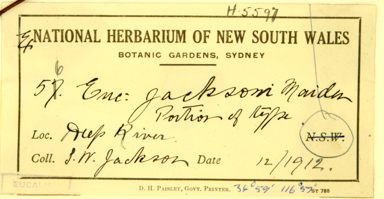 H5597
Ex NATIONAL HERBARIUM OF NEW SOUTH WALES
BOTANIC GARDENS, SYDNEY
6
57 Euc: Jacksoni Maiden
Portion of type.
Loc. Deep River. N.S.W.
Coll. S.W. Jackson Date 12/1912.
EUCAL
D. H. Paisley, Govt. Printer. 34°59' 116°57' ST 786